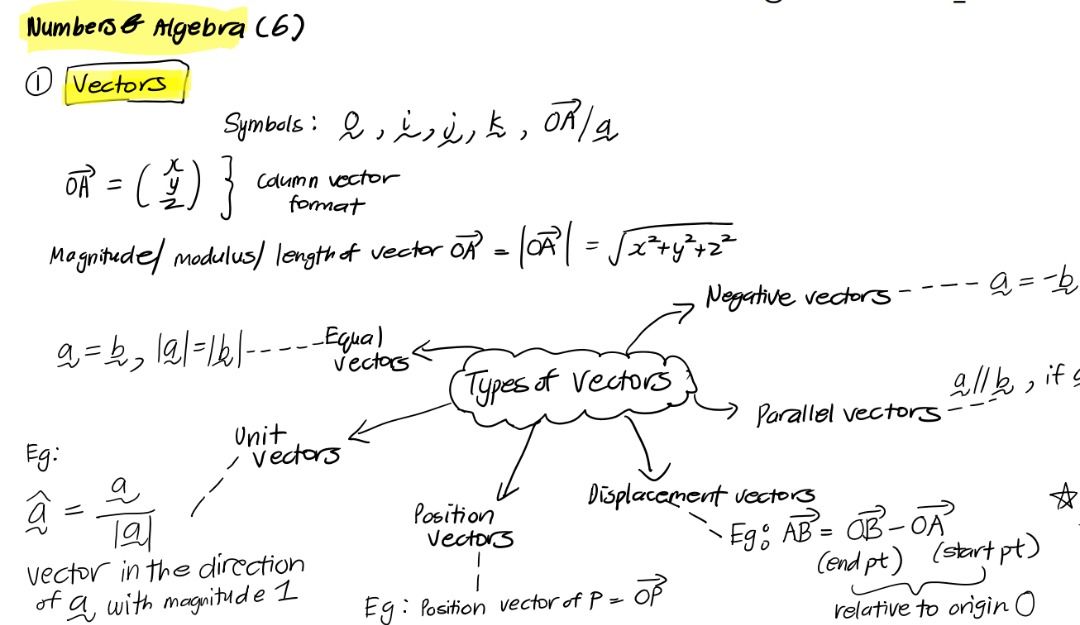 Numbers & Algebra (6)
① Vectors
Symbols: 0̰, ḭ, j̰, k̰, O͞A⃗/a̰
OA⃗ = (x y z) } column vector
format
Magnitude/ modulus/ length of vector OA⃗ = |OA⃗| = √x²+y²+z²
Negative vectors ---- a̰ = -b̰
a̰ = b̰, |a̰|=|b̰| ----- Equal
vectors
Types of Vectors
Parallel vectors --- a̰//b̰, if
Unit
vectors
Eg:
â̰ = a̰/|a̰|
vector in the direction
of a̰ with magnitude 1
Position
vectors
Eg: Position vector of P = OP⃗
Displacement vectors
Eg: AB⃗ = OB⃗ - OA⃗
(end pt) (start pt)
relative to origin O